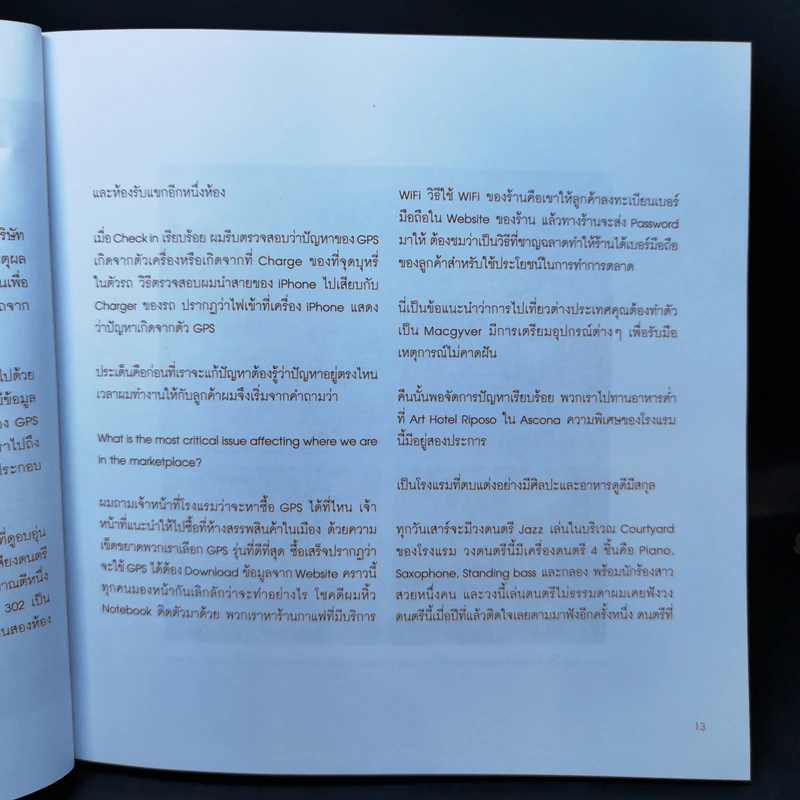 ริษัท
ตุผล
นเพื่อ
ถจาก
ไปด้วย
มีข้อมูล
อง GPS
ราไปถึง
ประกอบ
ที่ดูอบอุ่น
สียงดนตรี
มาณตีหนึ่ง
302 เป็น
นสองห้อง
และห้องรับแขกอีกหนึ่งห้อง
เมื่อ Check in เรียบร้อย ผมรีบตรวจสอบว่าปัญหาของ GPS
เกิดจากตัวเครื่องหรือเกิดจากที่ Charge ของที่จุดบุหรี่
ในตัวรถ วิธีตรวจสอบผมนำสายของ iPhone ไปเสียบกับ
Charger ของรถ ปรากฏว่าไฟเข้าที่เครื่อง iPhone แสดง
ว่าปัญหาเกิดจากตัว GPS
ประเด็นคือก่อนที่เราจะแก้ปัญหาต้องรู้ว่าปัญหาอยู่ตรงไหน
เวลาผมทำงานให้กับลูกค้าผมจึงเริ่มจากคำถามว่า
What is the most critical issue affecting where we are
in the marketplace?
ผมถามเจ้าหน้าที่โรงแรมว่าจะหาซื้อ GPS ได้ที่ไหน เจ้า
หน้าที่แนะนำให้ไปซื้อที่ห้างสรรพสินค้าในเมือง ด้วยความ
เข็ดขยาดพวกเราเลือก GPS รุ่นที่ดีที่สุด ซื้อเสร็จปรากฏว่า
จะใช้ GPS ได้ต้อง Download ข้อมูลจาก Website คราวนี้
ทุกคนมองหน้ากันเลิกลักว่าจะทำอย่างไร โชคดีผมหิ้ว
Notebook ติดตัวมาด้วย พวกเราหาร้านกาแฟที่มีบริการ
WiFi วิธีใช้ WiFi ของร้านคือเขาให้ลูกค้าลงทะเบียนเบอร์
มือถือใน Website ของร้าน แล้วทางร้านจะส่ง Password
มาให้ ต้องชมว่าเป็นวิธีที่ชาญฉลาดทำให้ร้านได้เบอร์มือถือ
ของลูกค้าสำหรับใช้ประโยชน์ในการทำการตลาด
นี่เป็นข้อแนะนำว่าการไปเที่ยวต่างประเทศคุณต้องทำตัว
เป็น Macgyver มีการเตรียมอุปกรณ์ต่างๆ เพื่อรับมือ
เหตุการณ์ไม่คาดฝัน
คืนนั้นพอจัดการปัญหาเรียบร้อย พวกเราไปทานอาหารค่ำ
ที่ Art Hotel Riposo ใน Ascona ความพิเศษของโรงแรม
นี้มีอยู่สองประการ
เป็นโรงแรมที่ตบแต่งอย่างมีศิลปะและอาหารดูดีมีสกุล
ทุกวันเสาร์จะมีวงดนตรี Jazz เล่นในบริเวณ Courtyard
ของโรงแรม วงดนตรีนี้มีเครื่องดนตรี 4 ชิ้นคือ Piano,
Saxophone, Standing bass และกลอง พร้อมนักร้องสาว
สวยหนึ่งคน และวงนี้เล่นดนตรีไม่ธรรมดาผมเคยฟังวง
ดนตรีนี้เมื่อปีที่แล้วติดใจเลยตามมาฟังอีกครั้งหนึ่ง ดนตรีที่
13